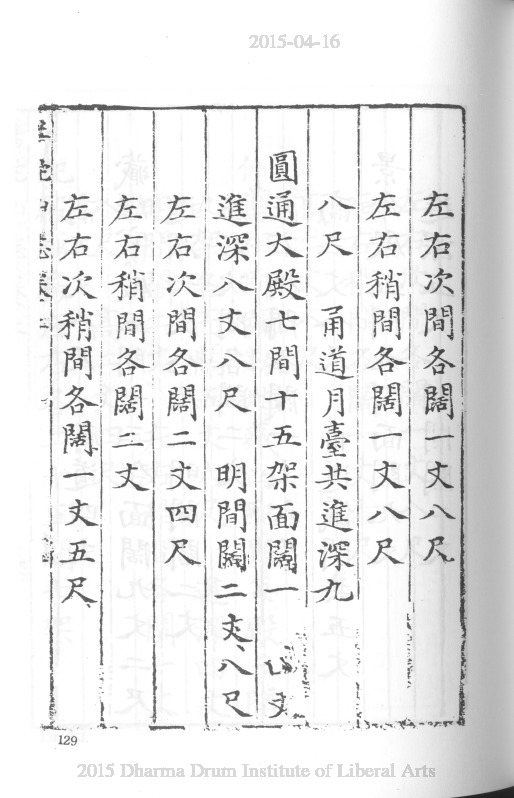 2015-04-16
左右次間各闊一丈八尺
左右稍間各闊一丈八尺
八尺 甬道月臺共進深九
圓通大殿七間十五架面闊一 丈
進深八丈八尺 明間闊二丈八尺
左右次間各闊二丈四尺
左右稍間各闊二丈
左右次稍間各闊一丈五尺
129
2015 Dharma Drum Institute of Liberal Arts